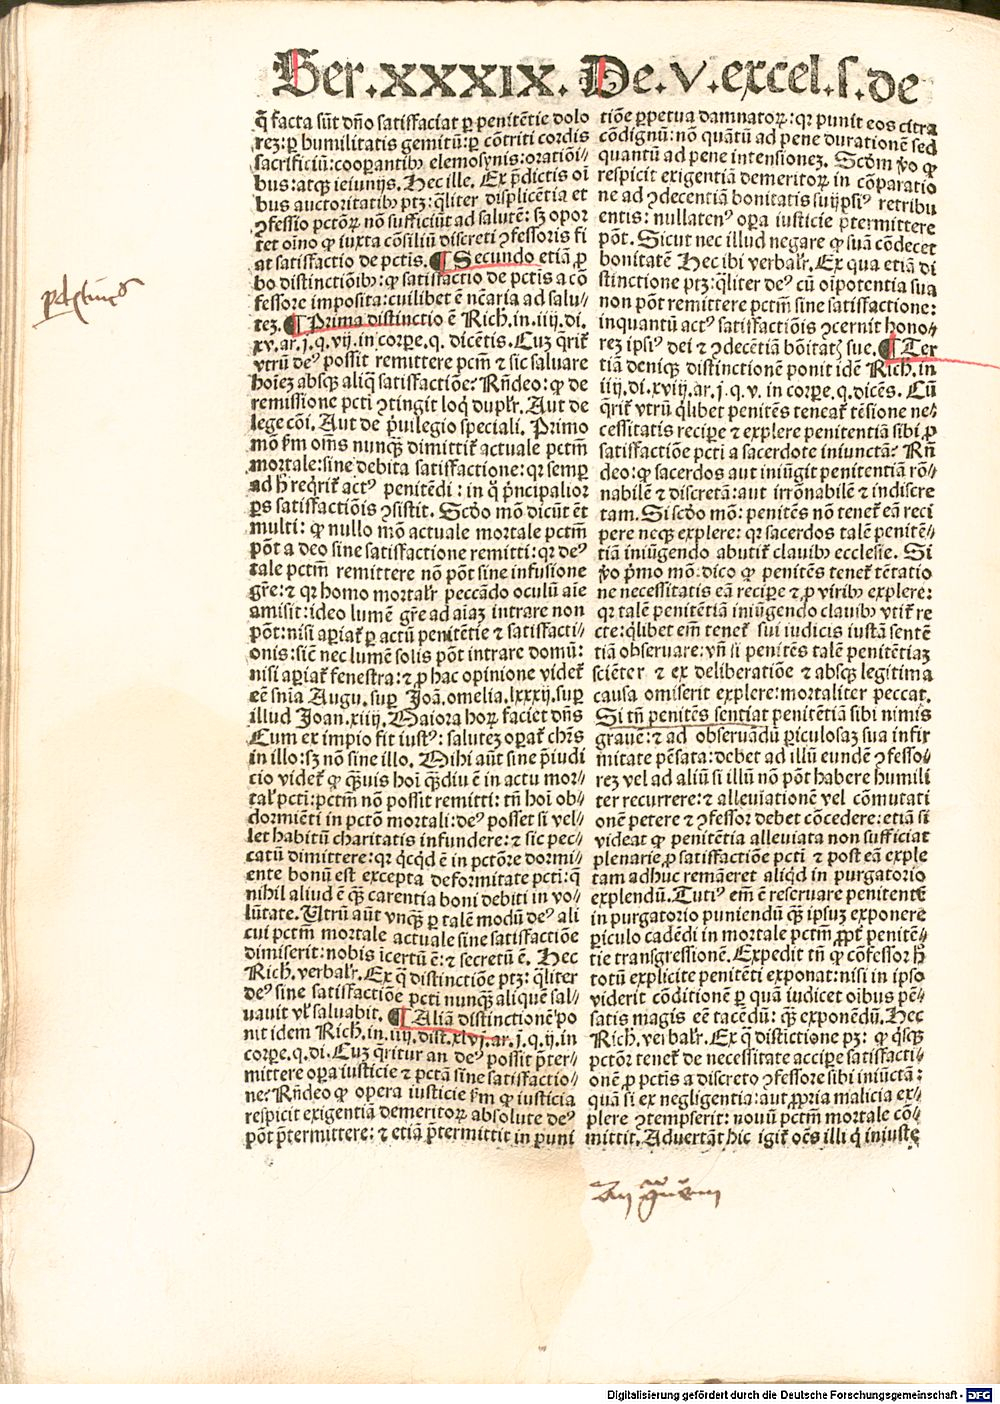 Ser.XXXIX. De.V.excel.s.de
q̃ facta sũt dño satisfaciat ꝑ penitẽtie dolo
reꝫ:ꝑ humilitatis gemitũ:ꝑ cõtriti cordis
sacrificiũ:cooperantibꝰ elemosynis:oratiõi⸗
bus:atqꝫ ieiunijs. Hec ille. Ex p̃dictis oĩ
bus auctoritatibꝰ ptꝫ:qͥliter displicẽtia et
ꝯfessio pctõꝝ nõ sufficiũt ad salutẽ: sꝫ opor
tet oĩno ꝙ iuxta cõsiliũ discreti ꝯfessoris fi
at satisfactio de pctis.¶ Secundo etiã ꝑ
bo distinctiõibꝰ:ꝙ satisfactio de pctis a cõ
fessore imposita:cuilibet ẽ ncãria ad salu⸗
teꝫ.¶ Prima distinctio ẽ Rich.in.iiij.di.
xv.ar.j.q.vij.in corpe.q. dicẽtis. Cuꝫ qͣrit᷑
vtrũ deꝰ possit remittere pctm̃ ⁊ sic saluare
hoĩeꝫ absqꝫ aliq̃ satisfactiõe? Rñdeo: ꝙ de
remissione pcti ꝯtingit loqͥ duplr̃. Aut de
lege cõi. Aut de p̃uilegio speciali. Primo
mõ ẜm oms̃ nunqͣꝫ dimittit᷑ actuale pctm̃
mortale:sine debita satisfactione:qꝛ semꝑ
ad h̃ reqͥrit᷑ actꝰ penitẽdi: in qͦ p̃ncipalior
ꝑs satisfactiõis ꝯsistit. Scdõ mõ dicũt ẽt
multi: ꝙ nullo mõ actuale mortale pctm̃
põt a deo sine satisfactione remitti: qꝛ deꝰ
tale pctm̃ remittere nõ põt sine infusione
gr̃e: ⁊ qꝛ homo mortalr̃ peccãdo oculũ aĩe
amisit: ideo lumẽ gr̃e ad aĩaꝫ intrare non
põt: nisi aꝑiat᷑ ꝑ actũ penitẽtie ⁊ satisfacti⸗
onis: sic̃ nec lumẽ solis põt intrare domũ:
nisi aꝑiat᷑ fenestra: ⁊ ꝓ hac opinione videt᷑
eẽ sñia Augu. suꝑ Joã. omelia.lxxxij.suꝑ
illud Joan.xiiij. Maiora hoꝝ faciet dñs
Cum ex impio fit iustꝰ: saluteꝫ oꝑat᷑ chr̃s
in illo: sꝫ nõ sine illo. Mihi aũt sine p̃iudi
cio videt᷑ ꝙ qͣꝫuis hoĩ qͣꝫdiu ẽ in actu mor⸗
talꝰ pcti: pctm̃ nõ possit remitti: tñ hoĩ ob⸗
dormiẽti in pctõ mortali: deꝰ posset si vel⸗
let habitũ charitatis infundere: ⁊ sic pec⸗
catũ dimittere: qꝛ qͥcqͥd ẽ in pctõre dormi⸗
ente bonũ est excepta deformitate pcti: q̃
nihil aliud ẽ qͣꝫ carentia boni debiti in vo⸗
lũtate. Utrũ aũt vnqͣꝫ ꝑ talẽ modũ deꝰ ali
cui pctm̃ mortale actuale sine satisfactiõe
dimiserit: nobis ĩcertũ ẽ: ⁊ secretũ ẽ. Hec
Rich. verbalr̃. Ex q̃ distinctiõe ptꝫ: qͥliter
deꝰ sine satisfactiõe pcti nunqͣꝫ aliquẽ sal⸗
uauit vl̃ saluabit.¶ Aliã distinctionẽ po
nit idem Rich.in.iiij.dist.xlvj.ar.j.q.ij.in
corpe.q.di. Cuꝫ qͣritur an deꝰ possit p̃ter⸗
mittere oꝑa iusticie ⁊ pctã sine satisfactio⸗
ne? Rñdeo ꝙ opera iusticie ẜm ꝙ iusticia
respicit exigentiã demeritoꝝ absolute deꝰ
põt p̃termittere: ⁊ etiã p̃termittit in puni
tiõe ꝑpetua damnatoꝝ: qꝛ punit eos citra
cõdignũ: nõ quãtũ ad pene durationẽ sed
quantũ ad pene intensioneꝫ. Scdm̃ ꝟo ꝙ
respicit exigentiã demeritoꝝ in cõparatio
ne ad ꝯdecentiã bonitatis suijpsiꝰ retribu
entis: nullatenꝰ oꝑa iusticie p̃termittere
põt. Sicut nec illud negare ꝙ suã cõdecet
bonitatẽ Hec ibi verbalr̃. Ex qua etiã di
stinctione ptꝫ: qͥliter deꝰ cũ oĩpotentia sua
non põt remittere pctm̃ sine satisfactione:
inquantũ actꝰ satisfactiõis ꝯcernit hono⸗
reꝫ ipsiꝰ dei ⁊ ꝯdecẽtiã bõitatꝭ sue.¶ Ter
tiã deniqꝫ distinctionẽ ponit idẽ Rich.in
iiij.di.xviij.ar.j.q.v. in corpe.q.dicẽs. Cũ
qͣrit᷑ vtrũ qͥlibet penitẽs teneat᷑ tẽsione ne⸗
cessitatis recipe ⁊ explere penitentiã sibi ꝓ
satisfactiõe pcti a sacerdote iniunctã? Rñ
deo: ꝙ sacerdos aut iniũgit penitentiã rõ⸗
nabilẽ ⁊ discretã: aut irrõnabilẽ ⁊ indiscre
tam. Si scdo mõ: penitẽs nõ tenet᷑ eã reci
pere neqꝫ explere: qꝛ sacerdos talẽ penitẽ⸗
tiã iniũgendo abutit᷑ clauibꝰ ecclesie. Si
ꝟo p̃mo mõ: dico ꝙ penitẽs tenet᷑ tẽtatio
ne necessitatis eã recipe ⁊ ꝓ viribꝰ explere:
qꝛ talẽ penitẽtiã iniũgendo clauibꝰ vtit᷑ re
cte: qͥlibet em̃ tenet᷑ sui iudicis iustã sentẽ
tiã obseruare: vñ si penitẽs talẽ penitẽtiaꝫ
sciẽter ⁊ ex deliberatiõe ⁊ absqꝫ legitima
causa omiserit explere: mortaliter peccat.
Si tñ penitẽs sentiat penitẽtiã sibi nimis
grauẽ: ⁊ ad obseruãdũ ꝑiculosaꝫ sua infir
mitate pẽsata: debet ad illũ eundẽ ꝯfesso⸗
reꝫ vel ad aliũ si illũ nõ põt habere humili
ter recurrere: ⁊ alleuiationẽ vel cõmutati
onẽ petere ⁊ ꝯfessor debet cõcedere: etiã si
videat ꝙ penitẽtia alleuiata non sufficiat
plenarie ꝓ satisfactiõe pcti ⁊ post eã exple
tam adhuc remãeret aliqͥd in purgatorio
explendũ. Tutiꝰ em̃ ẽ reseruare penitentẽ
in purgatorio puniendũ qͣꝫ ipsuꝫ exponere
ꝑiculo cadẽdi in mortale pctm̃ ꝓpt̃ penitẽ⸗
tie transgressionẽ. Expedit tñ ꝙ cõfessor h̃
totũ explicite penitẽti exponat: nisi in ipso
viderit cõditionẽ ꝑ quã iudicet oĩbus pẽ⸗
satis magis eẽ tacẽdũ: qͣꝫ exponẽdũ. Hec
Rich. verbalr̃. Ex q̃ distictione pꝫ: ꝙ qͥsqꝫ
pctõr tenet᷑ de necessitate accipe satisfacti⸗
onẽ ꝓ pctis a discreto ꝯfessore sibi iniũctã:
quã si ex negligentia: aut ꝓpria malicia ex⸗
plere ꝯtempserit: nouũ pctm̃ mortale cõ⸗
mittit. Aduertãt hic igit᷑ oẽs illi qͥ iniuste